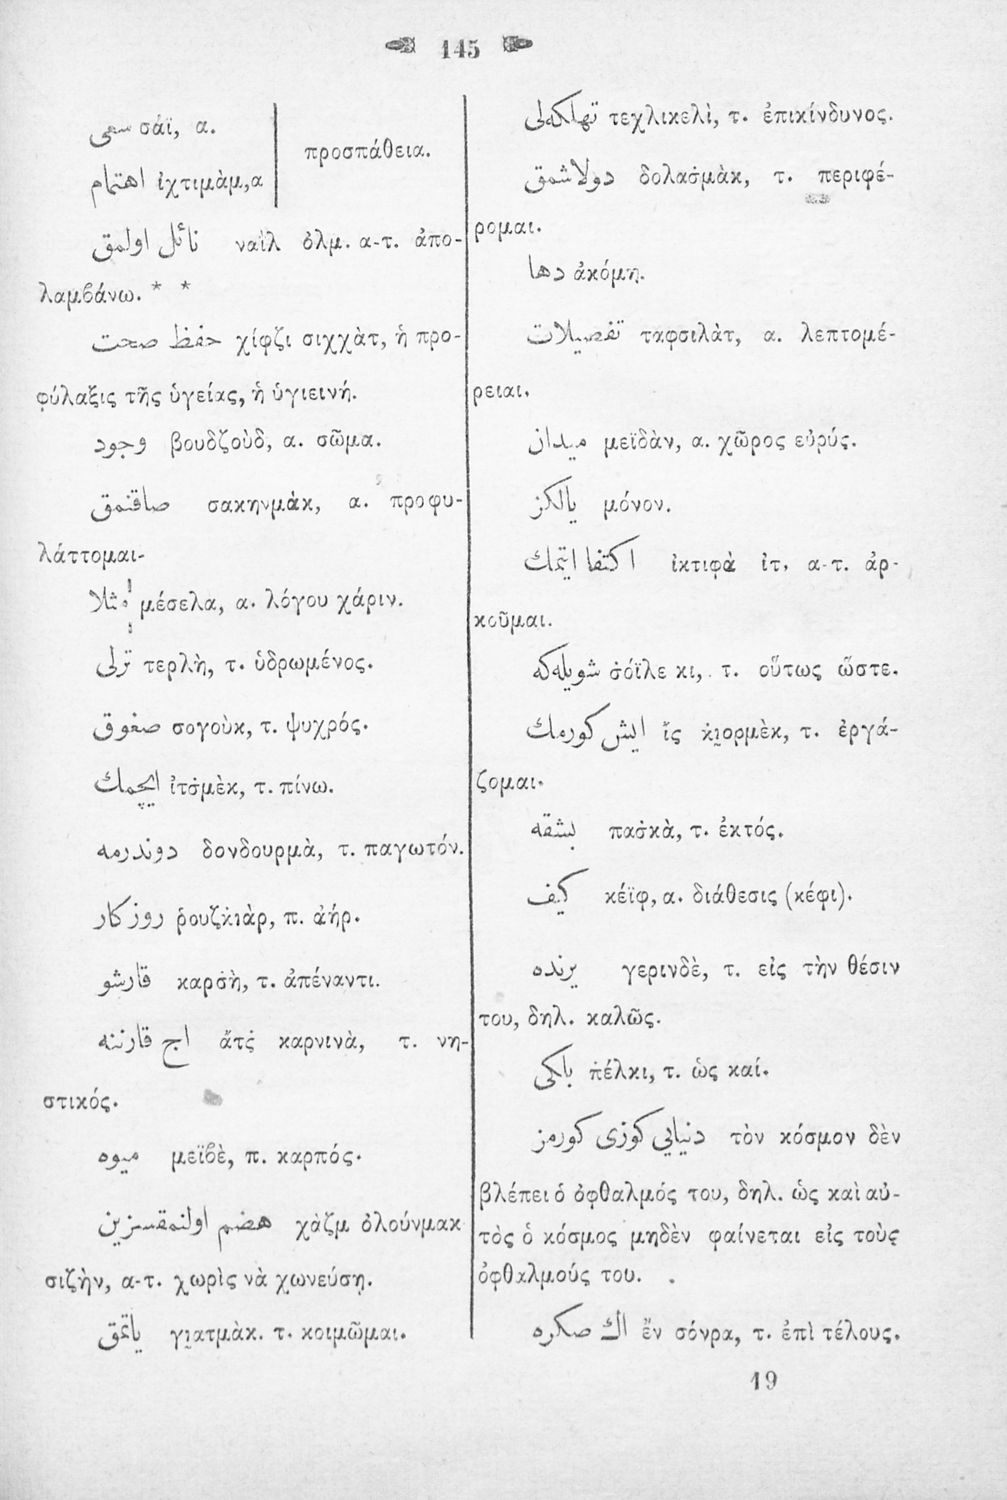 145
سعی σάϊ, α.
اهتمام ἰχτιμὰμ,α
προσπάθεια.
نائل اولمق ναΐλ ὀλμ. α-τ. ἀπο-
λαμβάνω. * *
حفظ صحت χίφζι σιχχὰτ, ἡ προ-
φύλαξις τῆς ὑγείας, ἡ ὑγιεινή.
وجود βουδζοὺδ, α. σῶμα.
صاقنمق σακηνμὰκ, α. προφυ-
λάττομαι-
مثلا μέσελα, α. λόγου χάριν.
ترلی τερλὴ, τ. ὑδρωμένος.
صغوق σογοὺκ, τ. ψυχρός.
ایچمك ἰτσ̇μὲκ, τ. πίνω.
دوندرمه δονδουρμὰ, τ. παγωτόν.
روزكار ῥουζκ̇ιὰρ, π. ἀήρ.
قارشو καρσ̇ὴ, τ. ἀπέναντι.
اج قارننه ἄτς̇ καρνινὰ, τ. νη-
στικός.
میوه μεϊβὲ, π. καρπός.
هضم اولنمقسزین χὰζμ ὀλούνμακ
σιζὴν, α-τ. χωρὶς νὰ χωνεύσῃ.
یاتمق γι̮ατμὰκ. τ. κοιμῶμαι.
تهلكه لی τεχλικελὶ, τ. ἐπικίνδυνος.
دولاشمق δολασ̇μὰκ, τ. περιφέ-
ρομαι.
دها ἀκόμη.
تفصیلات ταφσιλὰτ, α. λεπτομέ-
ρειαι.
میدان μεϊδὰν, α. χῶρος εὐρύς.
یالكز μόνον.
اكتفا ایتمك ἰκτιφὰ ἰτ. α-τ. ἀρ-
κοῦμαι.
شویله كه σ̇όϊλε κι, τ. οὕτως ὥστε.
ایش كورمك ἴς κ̇ι̮ορμὲκ, τ. ἐργά-
ζομαι.
بشقه πασ̇κὰ, τ. ἐκτός.
كیف κέϊφ, α. διάθεσις (κέφι).
یرنده γερινδὲ, τ. εἰς τὴν θέσιν
του, δηλ. καλῶς.
بلكی π̇έλκι, τ. ὡς καί.
دنیایی كوزی كورمز τὸν κόσμον δὲν
βλέπει ὁ ὀφθαλμός του, δηλ. ὡς καὶ αὐ-
τὸς ὁ κόσμος μηδὲν φαίνεται εἰς τοὺς
ὀφθαλμούς του.
اك صكره ἒν σόνρα, τ. ἐπὶ τέλους.
19